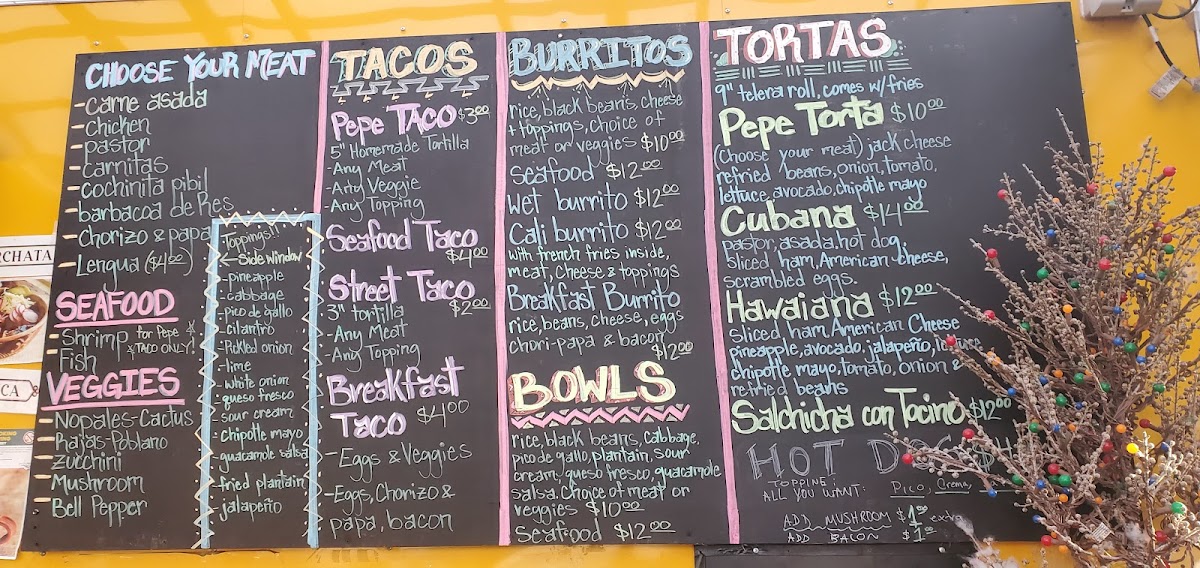 RCHATA
CA &
CHOOSE YOUR MEAT
- Carne asada
- Chicken
- pastor
- carnitas
- cochinita pibil
- barbacoa de Res
- Chorizo & papa
- Lengua ($4.00)
SEAFOOD
- Shrimp for Pepe
TACO ONLY!
- Fish
VEGGIES
- Nopales-Cactus
- Rajas-Poblano
- Zucchini
- Mushroom
- Bell Pepper
Toppings!!
← Side window
- pineapple
- cabbage
- pico de gallo
- cilantro
- Pickled onion
- lime
- white onion
- queso fresco
- sour cream
- chipotle mayo
- guacamole salsa
- fried plantain
- jalapeño
TACOS
Pepe TACO $3.00
5" Homemade Tortilla
- Any Meat
- Any Veggie
- Any Topping
Seafood Taco
$4.00
Street Taco
$2.00
3" tortilla
- Any Meat
- Any Topping
Breakfast
Taco $4.00
- Eggs & Veggies
- Eggs, Chorizo &
papa, bacon
BURRITOS
rice, black beans, cheese
+ toppings, choice of
meat or veggies $10.00
Seafood $12.00
Wet burrito $12.00
Cali burrito $12.00
with french fries inside,
meat, cheese & toppings
Breakfast Burrito
rice, beans, cheese, eggs
chori-papa & bacon
$12.00
BOWLS
rice, black beans, cabbage,
pico de gallo, plantain, sour
cream, queso fresco, guacamole
salsa. Choice of meat or
veggies $10.00
Seafood $12.00
TORTAS
9" telera roll, comes w/ fries
Pepe Torta $10.00
(Choose your meat) jack cheese
refried beans, onion, tomato,
lettuce, avocado, chipotle mayo
Cubana $14.00
pastor, asada, hot dog,
Sliced ham, American cheese,
scrambled eggs.
Hawaiana $12.00
Sliced ham, American Cheese
pineapple, avocado, jalapeño,
chipotle mayo, tomato, onion &
refried beans
Salchicha con Tocino $12.00
HOT DOG
TOPPING:
ALL YOU WANT: Pico, Crema,
ADD MUSHROOM $1.00
ADD BACON $1.00